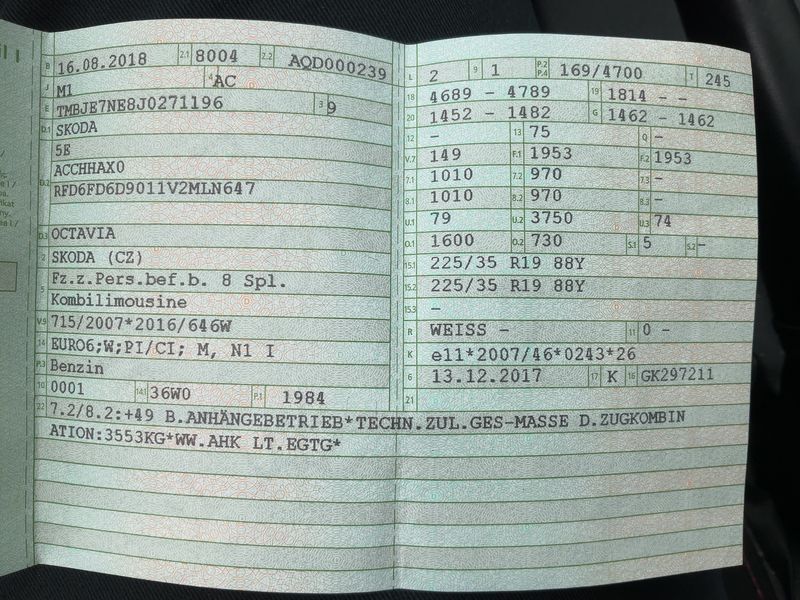 B 16.08.2018 2.1 8004 2.2 AQD000239
J M1 4 AC
E TMBJE7NE8J0271196 3 9
D.1 SKODA
5E
ACCHHAX0
D.2 RFD6FD6D9011V2MLN647
D.3 OCTAVIA
2 SKODA (CZ)
5 Fz.z.Pers.bef.b. 8 Spl.
Kombilimousine
V.9 715/2007*2016/646W
14 EURO6;W;PI/CI; M, N1 I
P.3 Benzin
10 0001 14.1 36W0 P.1 1984
22 7.2/8.2:+49 B.ANHÄNGEBETRIEB*TECHN.ZUL.GES-MASSE D.ZUGKOMBIN
ATION:3553KG*WW.AHK LT.EGTG*
L 2 9 1 P.2 P.4 169/4700 T 245
18 4689 - 4789 19 1814 - -
20 1452 - 1482 G 1462 - 1462
12 - 13 75 Q -
V.7 149 F.1 1953 F.2 1953
7.1 1010 7.2 970 7.3 -
8.1 1010 8.2 970 8.3 -
U.1 79 U.2 3750 U.3 74
O.1 1600 O.2 730 S.1 5 S.2 -
15.1 225/35 R19 88Y
15.2 225/35 R19 88Y
15.3 -
R WEISS - 11 0 -
K e11*2007/46*0243*26
6 13.12.2017 17 K 16 GK297211
21